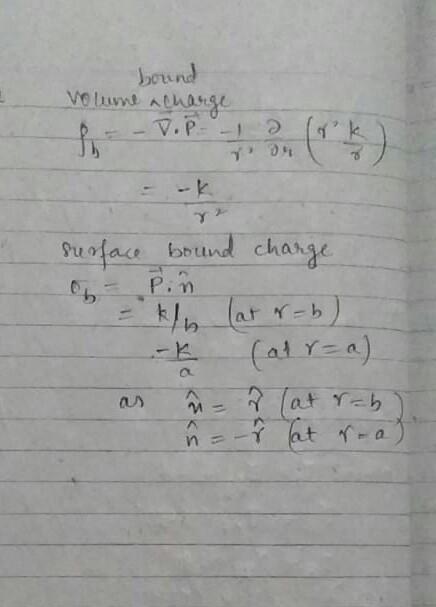 bound
volume ^ charge
ρ_b = -∇⃗.P⃗ = -1/r² ∂/∂r (r² k/r)
= -k/r²
surface bound charge
σ_b = P⃗.n̂
= k/b (at r=b)
-k/a (at r=a)
as n̂ = r̂ (at r=b)
n̂ = -r̂ (at r=a)